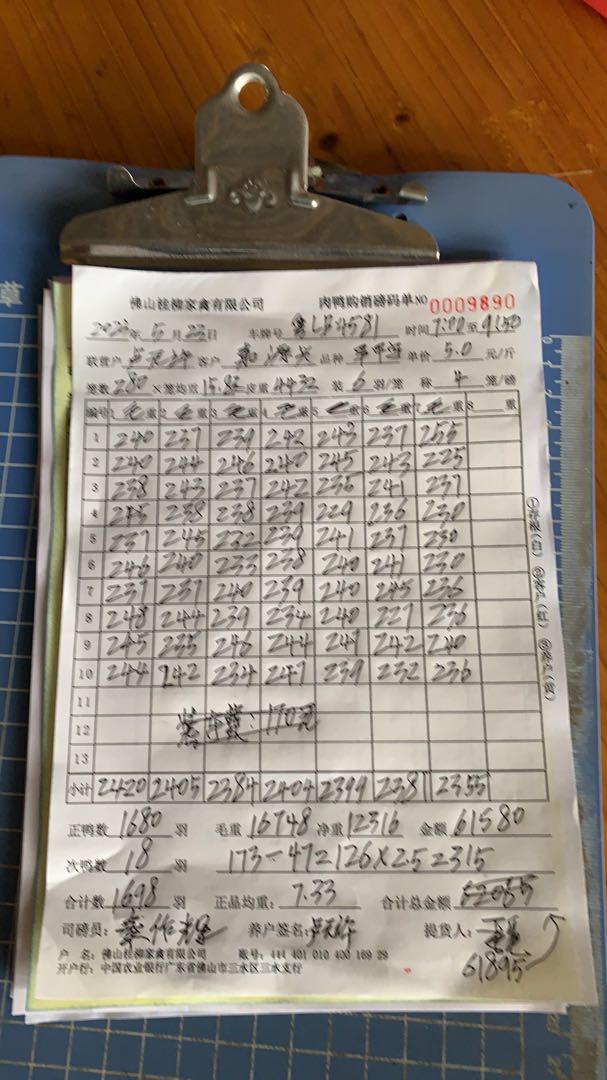 草
佛山桂柳家禽有限公司 肉鸭购销磅码单 NO 0009890
2023年5月23日 车牌号 粤LB4581 时间 7:00至9:50
联营户 客户 品种 单价 5.0 元/斤
笼数 280 ×笼均重 15.83 皮重 4432 装 6 羽/笼 称 4 笼/磅
编号 1 毛重 2 毛重 3 毛重 4 毛重 5 毛重 6 毛重 7 毛重 8 重
1 240 237 239 242 243 237 255
2 240 244 246 240 245 243 225
3 238 243 237 242 236 241 237
4 245 238 238 239 229 236 230
5 237 245 232 239 241 237 230
6 246 240 233 238 240 241 230
7 237 237 240 239 240 245 236
8 248 244 239 234 240 227 236
9 245 235 246 244 247 242 240
10 244 242 234 247 239 232 236
11
12 170元
13
小计 2420 2405 2384 2404 2399 2381 2355
正鸭数 1680 羽 毛重 16748 净重 12316 金额 61580
次鸭数 18 羽 173-47=126×2.5=315
合计数 1698 羽 正品均重: 7.33 合计总金额
司磅员: 养户签名: 提货人:
户 名: 佛山桂柳家禽有限公司 账号: 444 401 010 400 169 29
61895
开户行: 中国农业银行广东省佛山市三水区三水支行
①存根(白) ②客户(红) ③养户(黄)